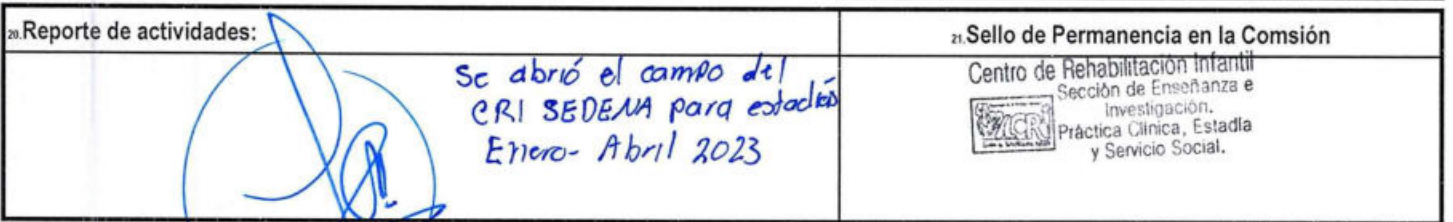 20.Reporte de actividades:
Se abrió el campo del
CRI SEDENA para estadías
Enero- Abril 2023
21.Sello de Permanencia en la Comsión
Centro de Rehabilitación Infantil
Sección de Enseñanza e
Investigación.
CRI
Práctica Clínica, Estadía
y Servicio Social.